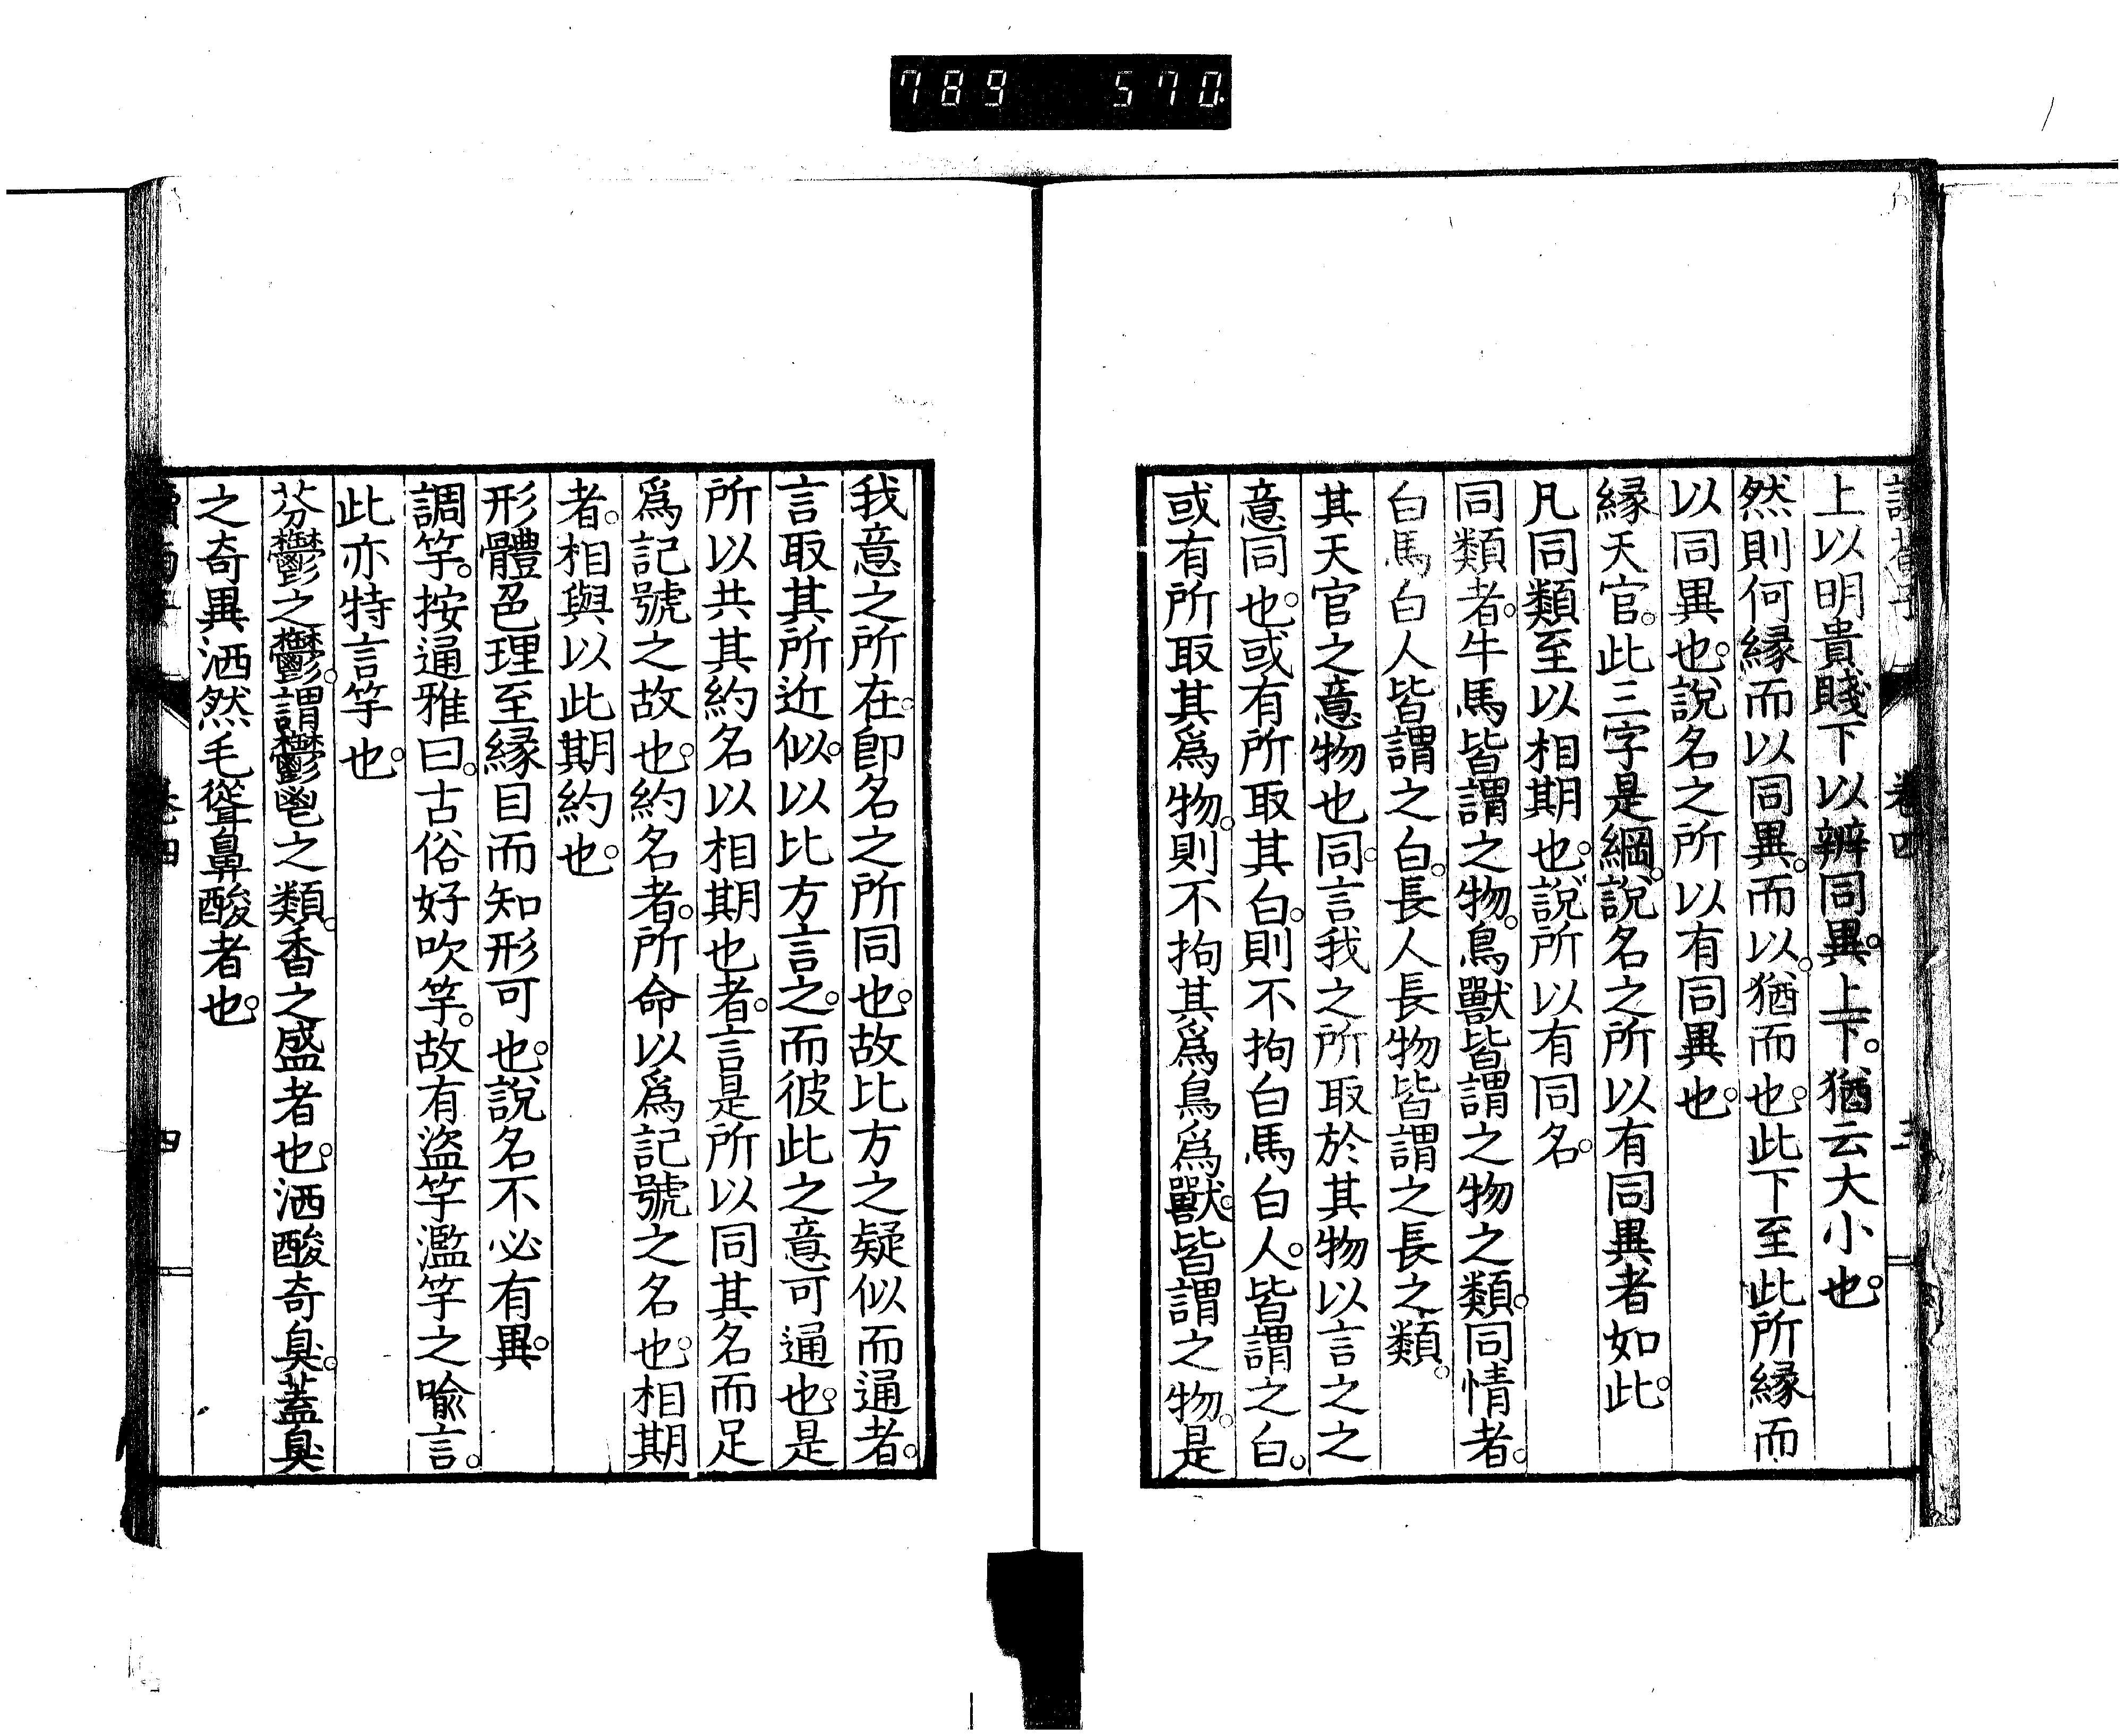 789 570.
讀荀子 卷四 三
上以明貴賤下以辨同異。上下。猶云大小也。
然則何緣而以同異。而以。猶而也。此下至此所緣而
以同異也。說名之所以有同異也。
緣天官。此三字是綱。說名之所以有同異者如此。
凡同類至以相期也。說所以有同名。
同類者。牛馬皆謂之物。鳥獸皆謂之物之類。同情者。
白馬白人皆謂之白。長人長物皆謂之長之類。
其天官之意物也同。言我之所取於其物以言之之
意同也。或有所取其白。則不拘白馬白人。皆謂之白。
或有所取其爲物。則不拘其爲鳥爲獸。皆謂之物。是
我意之所在。卽名之所同也。故比方之疑似而通者。
言取其所近似。以比方言之。而彼此之意可通也。是
所以共其約名以相期也者。言是所以同其名而足
爲記號之故也。約名者。所命以爲記號之名也。相期
者。相與以此期約也。
形體色理至緣目而知形可也。說名不必有異。
調竽。按通雅曰。古俗好吹竽。故有盜竽濫竽之喻言。
此亦特言竽也。
芬鬱之鬱。謂鬱鬯之類。香之盛者也。洒酸奇臭。蓋臭
之奇異洒然毛聳鼻酸者也。
讀荀子 卷四 四